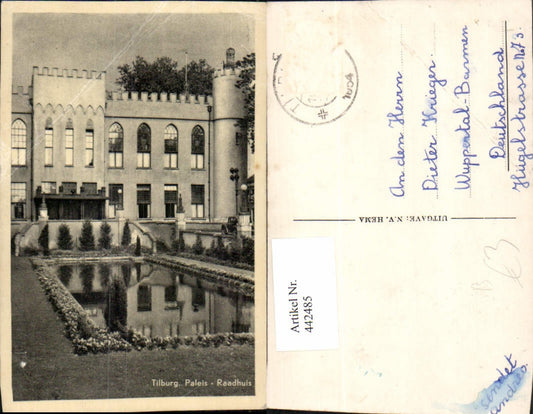 Tilburg. Paleis - Raadhuis
An den Herrn
Dieter Krieger
Wuppertal-Barmen
Deutschland
Hügelstrasse №73.
UITGAVE: N.V. HEMA
Artikel Nr.
442485